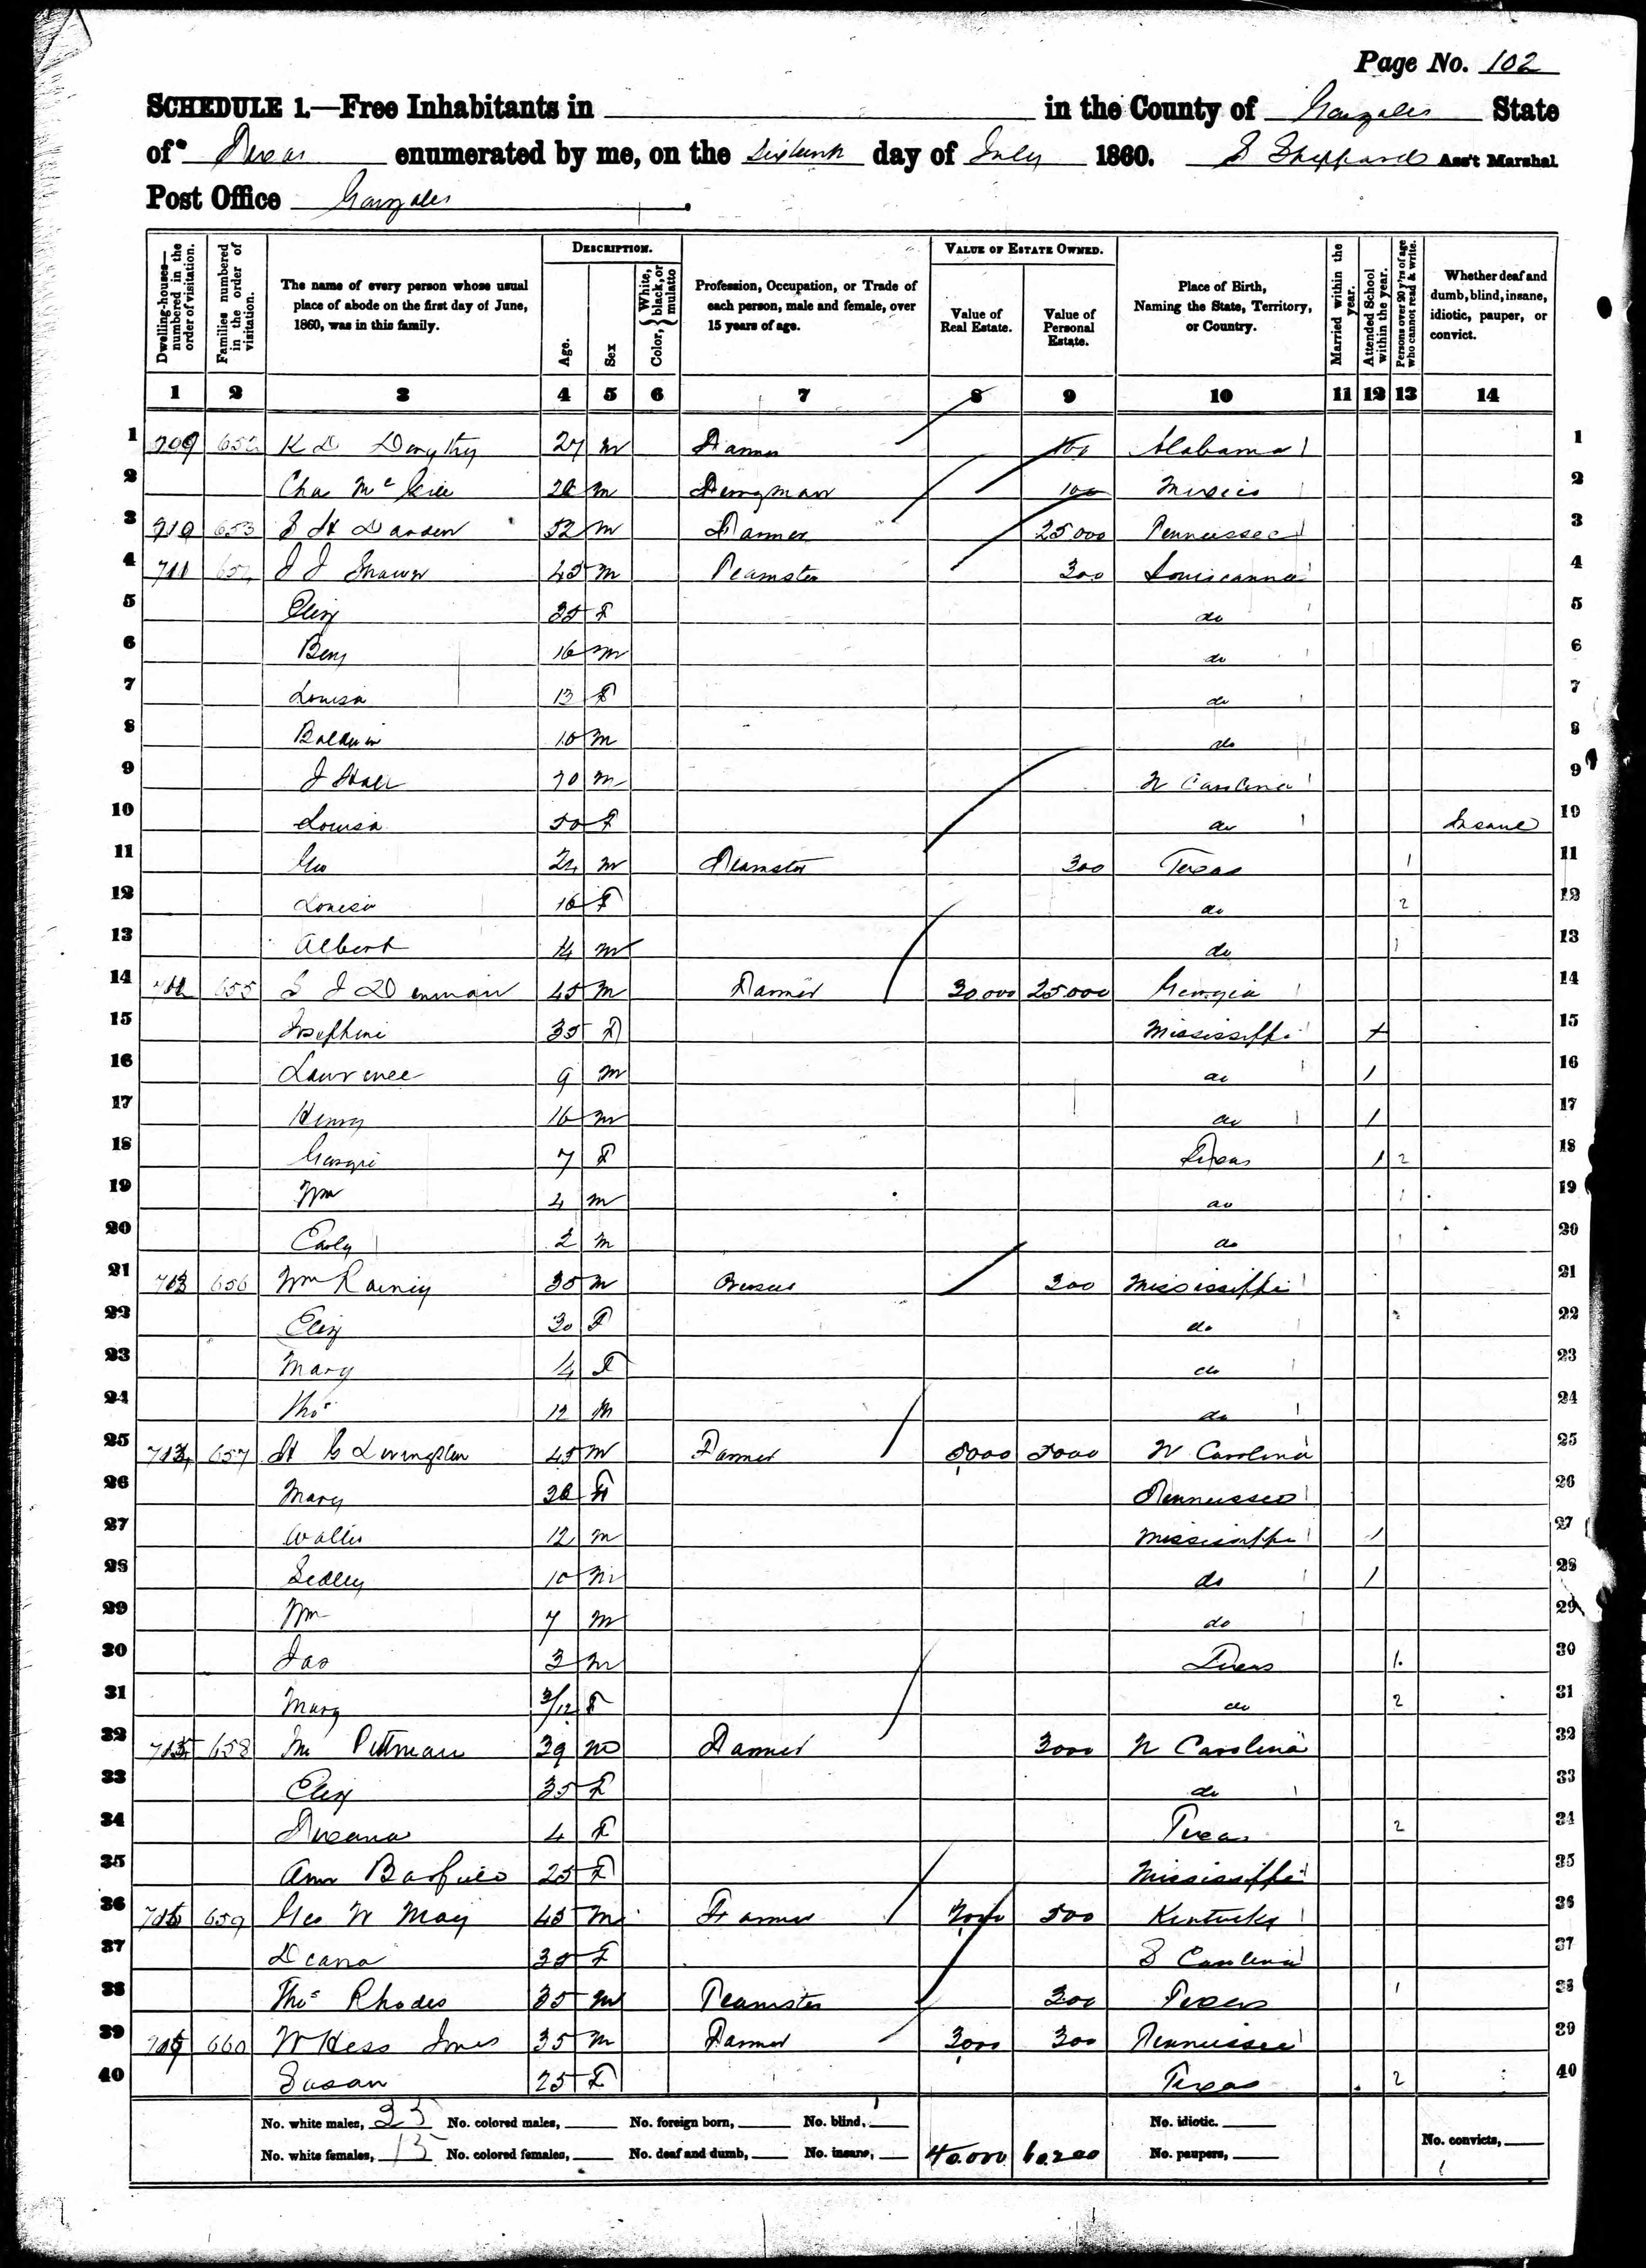 Page No. 102
SCHEDULE 1.—Free Inhabitants in in the County of Gonzales State
of Texas enumerated by me, on the Sixteenth day of July 1860. S Sheppard Ass't Marshal
Post Office Gonzales
Dwelling-houses—numbered in the order of visitation. Families numbered in the order of visitation. The name of every person whose usual place of abode on the first day of June, 1860, was in this family. DESCRIPTION. Age. Sex Color, { White, black, or mulatto Profession, Occupation, or Trade of each person, male and female, over 15 years of age. VALUE OF ESTATE OWNED. Value of Real Estate. Value of Personal Estate. Place of Birth, Naming the State, Territory, or Country. Married within the year. Attended School within the year. Persons over 20 y'rs of age who cannot read & write. Whether deaf and dumb, blind, insane, idiotic, pauper, or convict.
1 2 3 4 5 6 7 8 9 10 11 12 13 14
1 709 652 K D 27 m Farmer 100 Alabama 1
2 Cha 28 m 100 Mexico 2
3 710 653 Darden 52 m Farmer 25000 Tennessee 3
4 711 654 J J 45 m Teamster 300 Louiseanna 4
5 Eliz 35 F do 5
6 Benj 16 m do 6
7 Louisa 13 F do 7
8 Baldwin 10 m do 8
9 J Hall 70 m N Carolina 9
10 Louisa 50 F do Insane 10
11 Geo 24 m Teamster 300 Texas 1 11
12 Louisa 16 F do 2 12
13 Albert 14 m do 1 13
14 712 655 S J Denman 45 m Farmer 30.000 25.000 Georgia 14
15 Josephine 35 F Mississippi + 15
16 Lawrence 9 m do / 16
17 Henry 16 m do / 17
18 Georgie 7 F Texas / 2 18
19 Wm 4 m do 1 19
20 Early 2 m do 1 20
21 713 656 Wm Rainey 35 m 300 Mississippi 21
22 Eliz 30 F do 22
23 Mary 14 F do 23
24 Thos 12 m do 24
25 714 657 H G Livingston 45 m Farmer 5000 5000 N Carolina 25
26 Mary F Tennessee 26
27 Walter 12 m Mississippi / 27
28 Sedley 10 m do / 28
29 Wm 7 m do 29
30 Jas 3 m Texas 1 30
31 Mary 3/12 F do 2 31
32 715 658 Jno Pittman 39 m Farmer 3000 N Carolina 32
33 Eliz 35 F do 33
34 Texana 4 F Texas 2 34
35 Ann Barfield 25 F Mississippi 35
36 716 659 Geo W May 45 m Farmer 2000 500 Kentucky 36
37 Deana 35 F S Carolina 37
38 Thos Rhodes 35 m Teamster 300 Texas 1 38
39 660 W Hess Jones 35 m Farmer 3000 300 Tennessee 39
40 Susan 25 F Texas 2 40
No. white males, 25 No. colored males, No. foreign born, No. blind, No. idiotic.
No. white females, 15 No. colored females, No. deaf and dumb, No. insane, 40.000 60200 No. paupers, No. convicts,